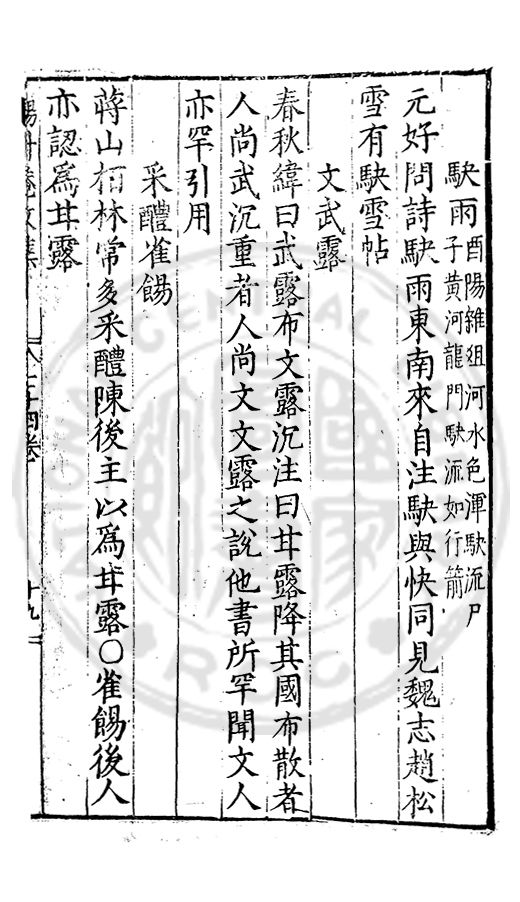 駃雨 酉陽雜俎河水色渾駃流尸
子黃河龍門駃流如行箭
元好問詩駃雨東南來自注駃與快同見魏志趙松
雪有駃雪帖
文武露
春秋緯曰武露布文露沉注曰甘露降其國布散者
人尚武沉重者人尚文文露之說他書所罕聞文人
亦罕引用
采醴雀餳
蔣山栢林常多采醴陳後主以為甘露○雀餳後人
亦認為甘露
七十四卷
十九
CENTRAL